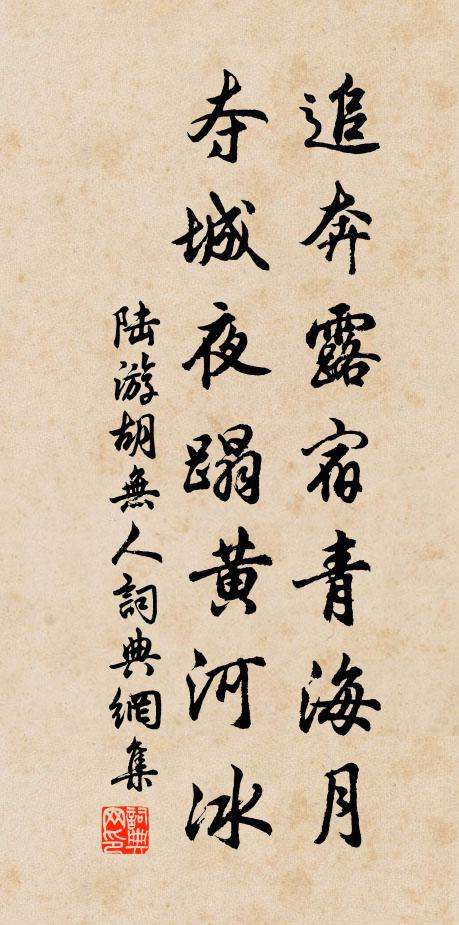 追奔露宿青海月
夺城夜蹋黄河冰
陆游胡無人詞典網集
詞典网印